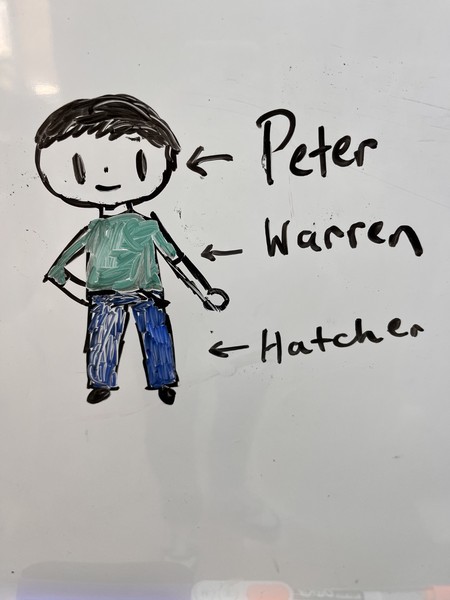 Peter
Warren
Hatcher